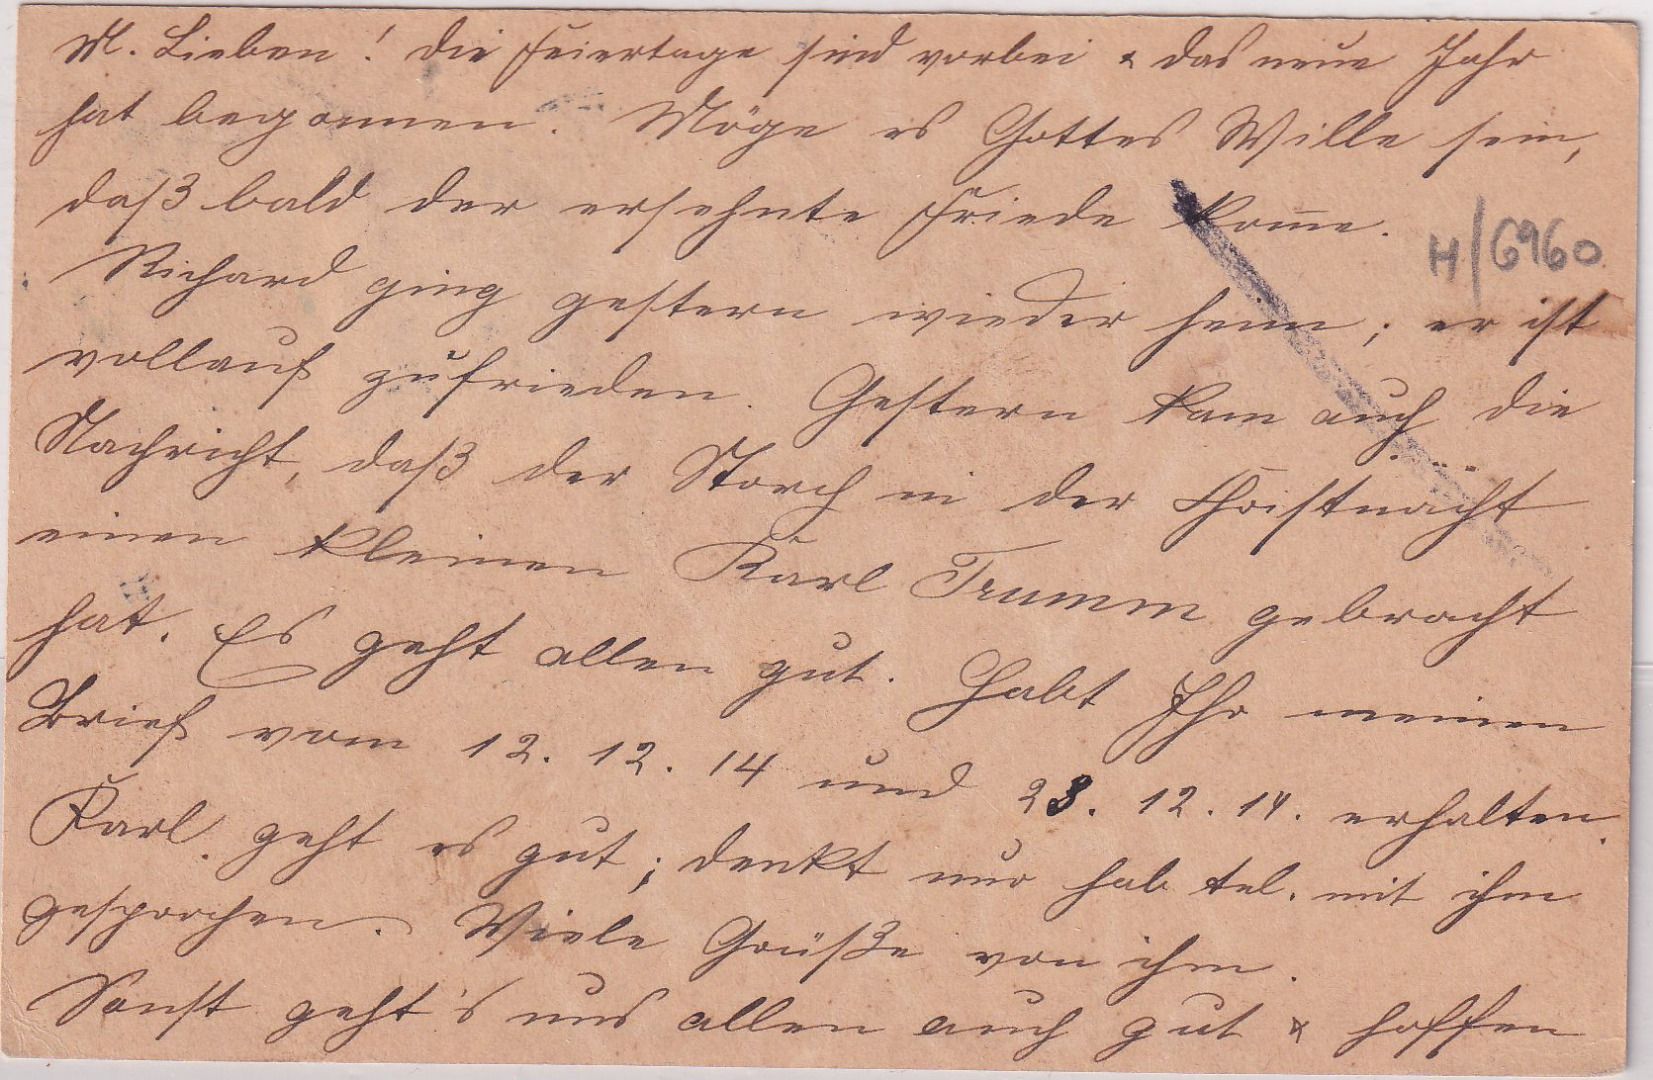 M. Lieben! Die Feiertage sind vorbei & das neue Jahr
hat begonnen. Möge es Gottes Wille sein,
daß bald der ersehnte Friede kom̅e.
H/6960
Richard ging gestern wieder heim; er ist
vollauf zufrieden. Gestern kam auch die
Nachricht, daß der Storch in der Christnacht
einen kleinen Karl Trumm gebracht
hat. Es geht allen gut. Habt Ihr meinen
Brief vom 12. 12. 14 und 28. 12. 14. erhalten.
Karl geht es gut; denkt nur hab tel. mit ihm
gesprochen. Viele Grüße von ihm.
Sonst geht's uns allen auch gut & hoffen